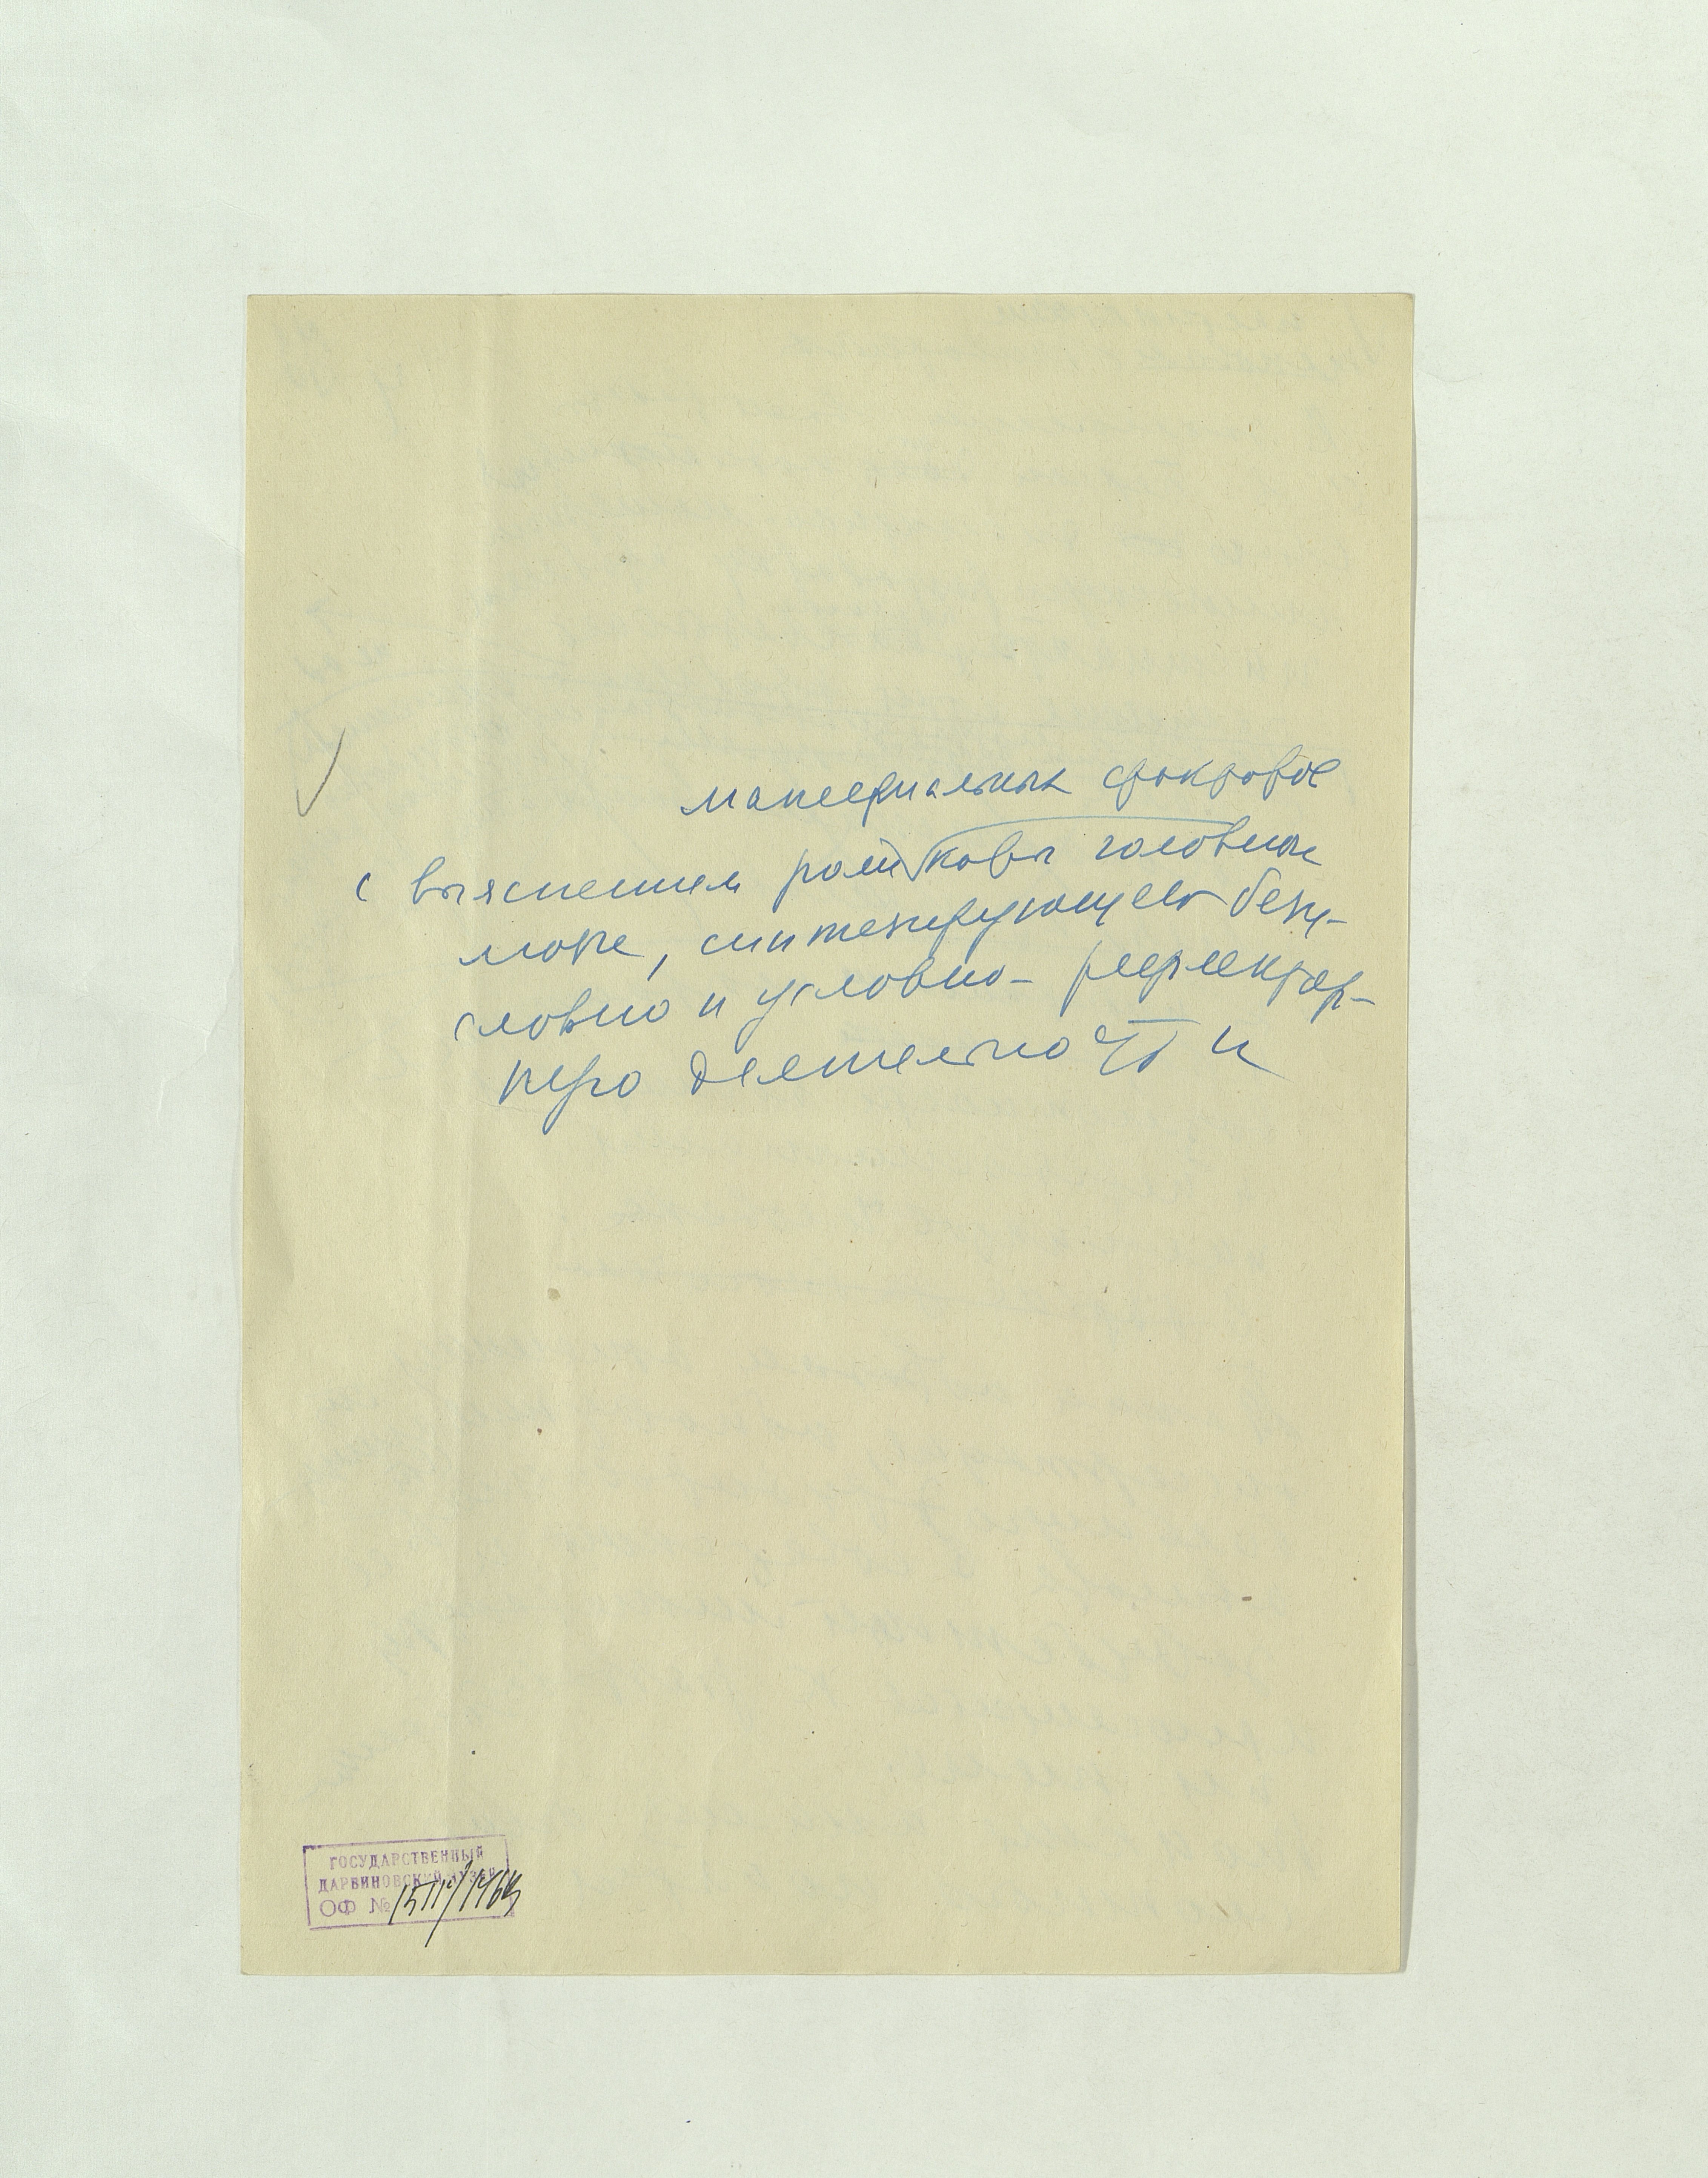 материальных факторов
с выяснением роли коры головного
мозга, синтезирующего безу-
словно и условно- рефлектор-
ную деятельности
ГОСУДАРСТВЕННЫЙ
ДАРВИНОВСКИЙ МУЗЕЙ
ОФ №